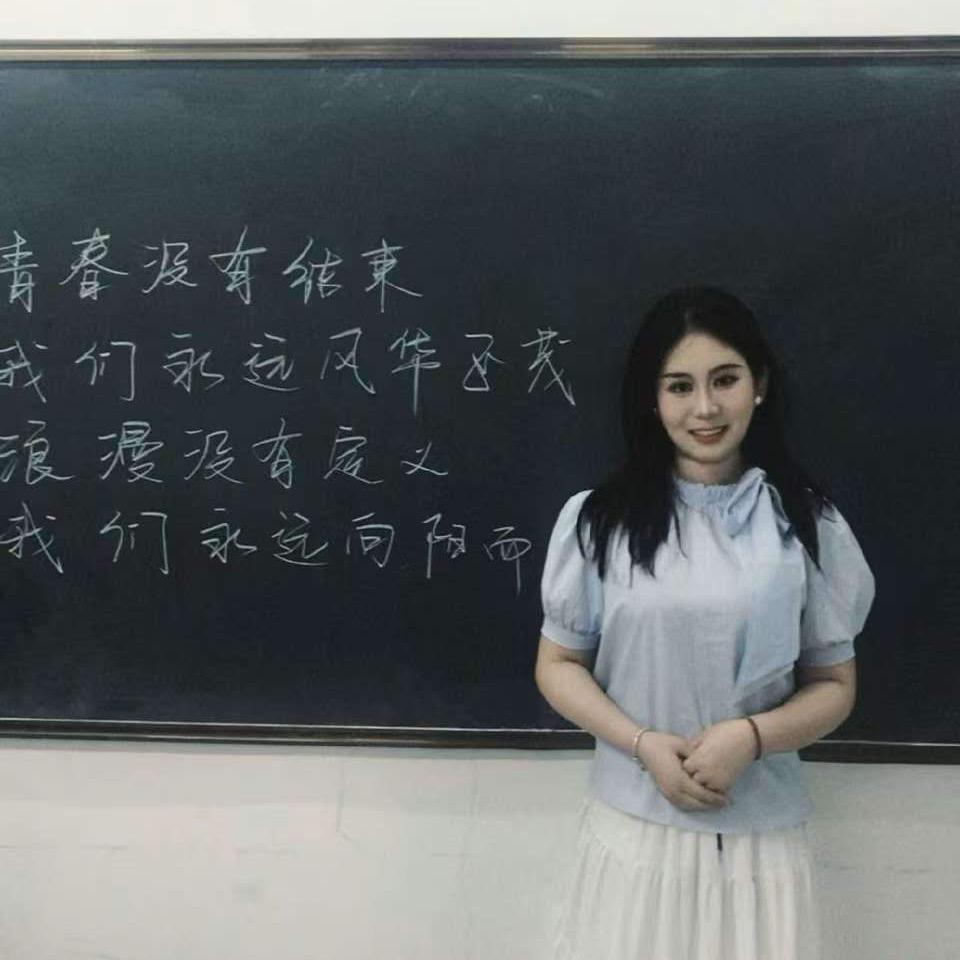 青春没有结束
我们永远风华正茂
浪漫没有定义
我们永远向阳而